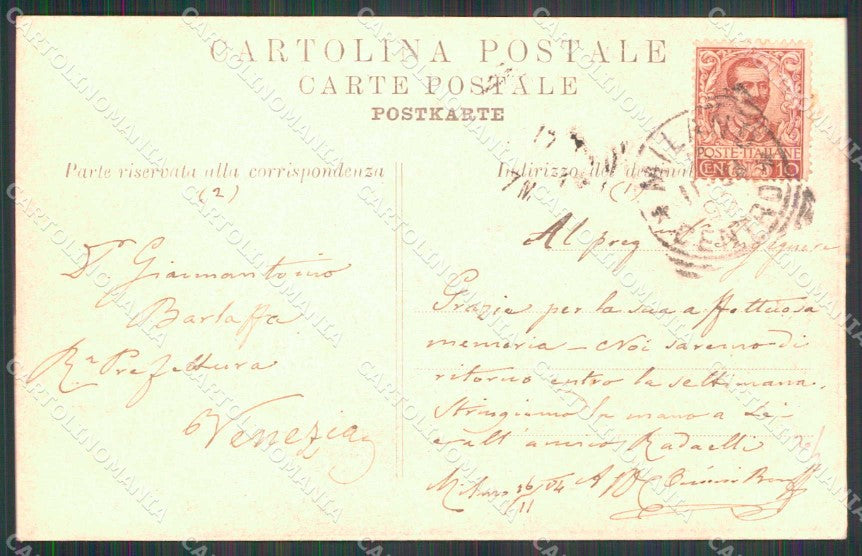 CARTOLINA POSTALE
CARTE POSTALE
POSTKARTE
POSTE ITALIANE
CENT. 10
MILANO
CENTRO
Parte riservata alla corrispondenza
(2)
Indirizzo del
(1)
Dr Giannantonio
Barbaffa
Ra Prefettura
Venezia
Al preg Signore
Grazie per la sua affettuosa
memoria - Noi saremo di
ritorno entro la settimana.
Stringiamo la mano a Lei
e all'amico Radaelli
Milano 16/11 04
CARTOLINOMANIA